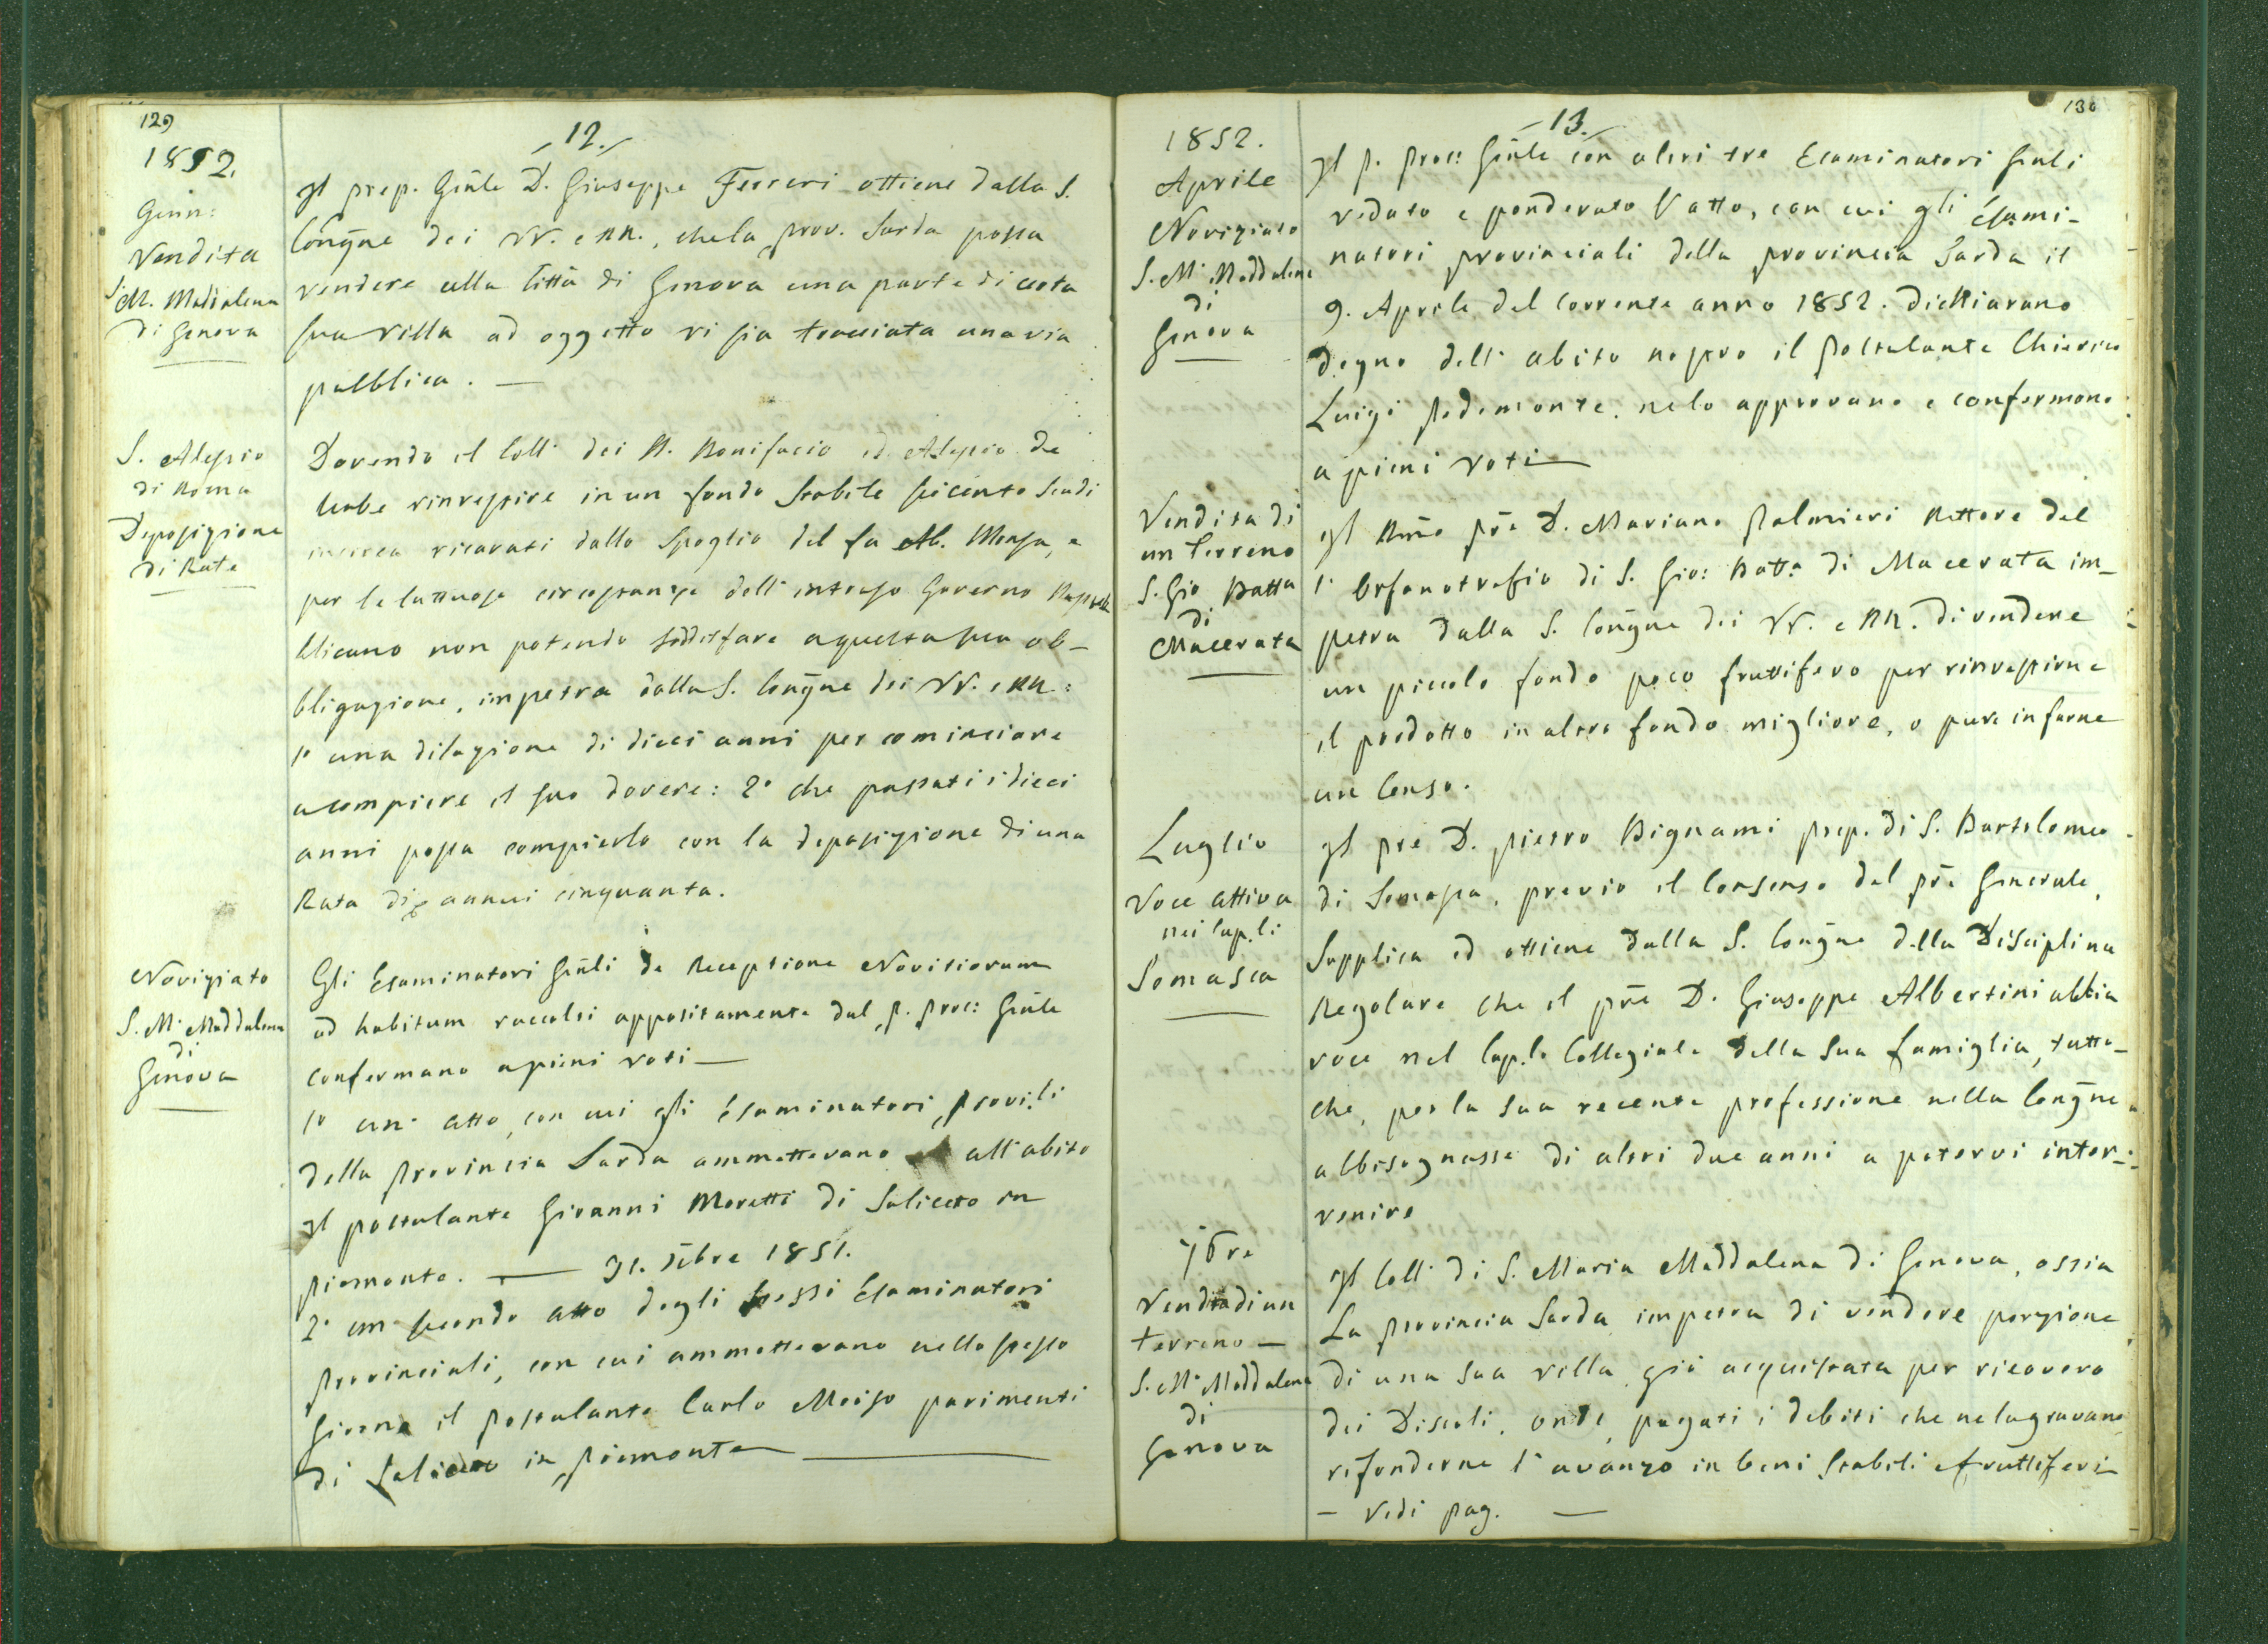 129
12.
1852.
Genn:
Vendita
S. M. Maddalena
di Genova
Il prep. Gñle D. Giuseppe Ferreri ottiene dalla S.
Congñe dei VV. e RR., che la prov. Sarda possa
vendere alla Città di Genova una parte di certa
sua villa ad oggetto vi sia tracciata una via
pubblica. —
S. Alessio
di Roma
Deposizione
di Rate
Dovendo il Coll: dei SS. Bonifacio ed Alessio de
Urbe rinvestire in un fondo stabile seicento scudi
incirca ricavati dallo Spoglio del fu Ab. Mensa, e
per le luttuose circostanze dell' intruso Governo Repub
blicano non potendo soddisfare a questa sua ob-
bligazione, impetra dalla S. Congñe dei VV. e RR:
1° una dilazione di dieci anni per cominciare
a compiere il suo dovere: 2° che passati i dieci
anni possa compierlo con la deposizione di una
Rata di annui cinquanta.
Noviziato
S. M. Maddalena
di
Genova
Gli Esaminatori Gñli de Receptione Novitiorum
ad habitum raccolti appositamente dal P. Proc: Gñle
confermano a pieni voti —
1° un' atto, con cui gli Esaminatori Provi.li
della Provincia Sarda ammettevano all' abito
Il postulante Giovanni Moretti di Saliceto in
Piemonte. — 31. Xbre 1851.
2° un secondo atto degli stessi Esaminatori
Provinciali, con cui ammettevano nello stesso
Giorno il Postulante Carlo Moizo parimenti
di Saliceto in Piemonte —
130
13.
1852.
Aprile
Noviziato
S. M. Maddalena
di
Genova
Il P. Proc: Gñle con altri tre Esaminatori Gnli
veduto e ponderato l' atto, con cui gli Esami-
natori provinciali della provincia Sarda il
9. Aprile del corrente anno 1852. dichiarano
degno dell' abito nostro il Postulante Chierico
Luigi Pedemonte, nelo approvano e confermano
a pieni voti —
Vendita di
un Terreno
S. Gio Batta
di
Macerata
Il Rm̃o pr̃e D. Mariano Palmieri Rettore del
l' Orfanotrofio di S. Gio: Batta di Macerata im-
petra dalla S. Congñe dei VV. e RR. di vendere
un piccolo fondo poco fruttifero per rinvestirne
il prodotto in altro fondo migliore, o pure in farne
un Censo.
Luglio
Voce attiva
nei Cap.li
Somasca
Il pre D. Pietro Bignami prep. di S. Bartolomeo
di Somasca, previo il Consenso del pr̃e Generale,
Supplica ed ottiene dalla S. Congñe della Disciplina
Regolare che il pr̃e D. Giuseppe Albertini abbia
voce nel Cap.lo Collegiale della Sua famiglia, tutto-
che, per la sua recente professione nella Congñe
abbisognasse di altri due anni a potervi inter-
venire
7bre
Vendita di un
terreno —
S. M. Maddalena
di
Genova
Il Coll: di S. Maria Maddalena di Genova, ossia
La Provincia Sarda impetra di vendere porzione
di una sua villa già acquistata per ricovero
dei Discoli, onde, pagati i debiti che ne lagravano
rifonderne l' avanzo in beni Stabili e fruttiferi —
— Vedi pag. —